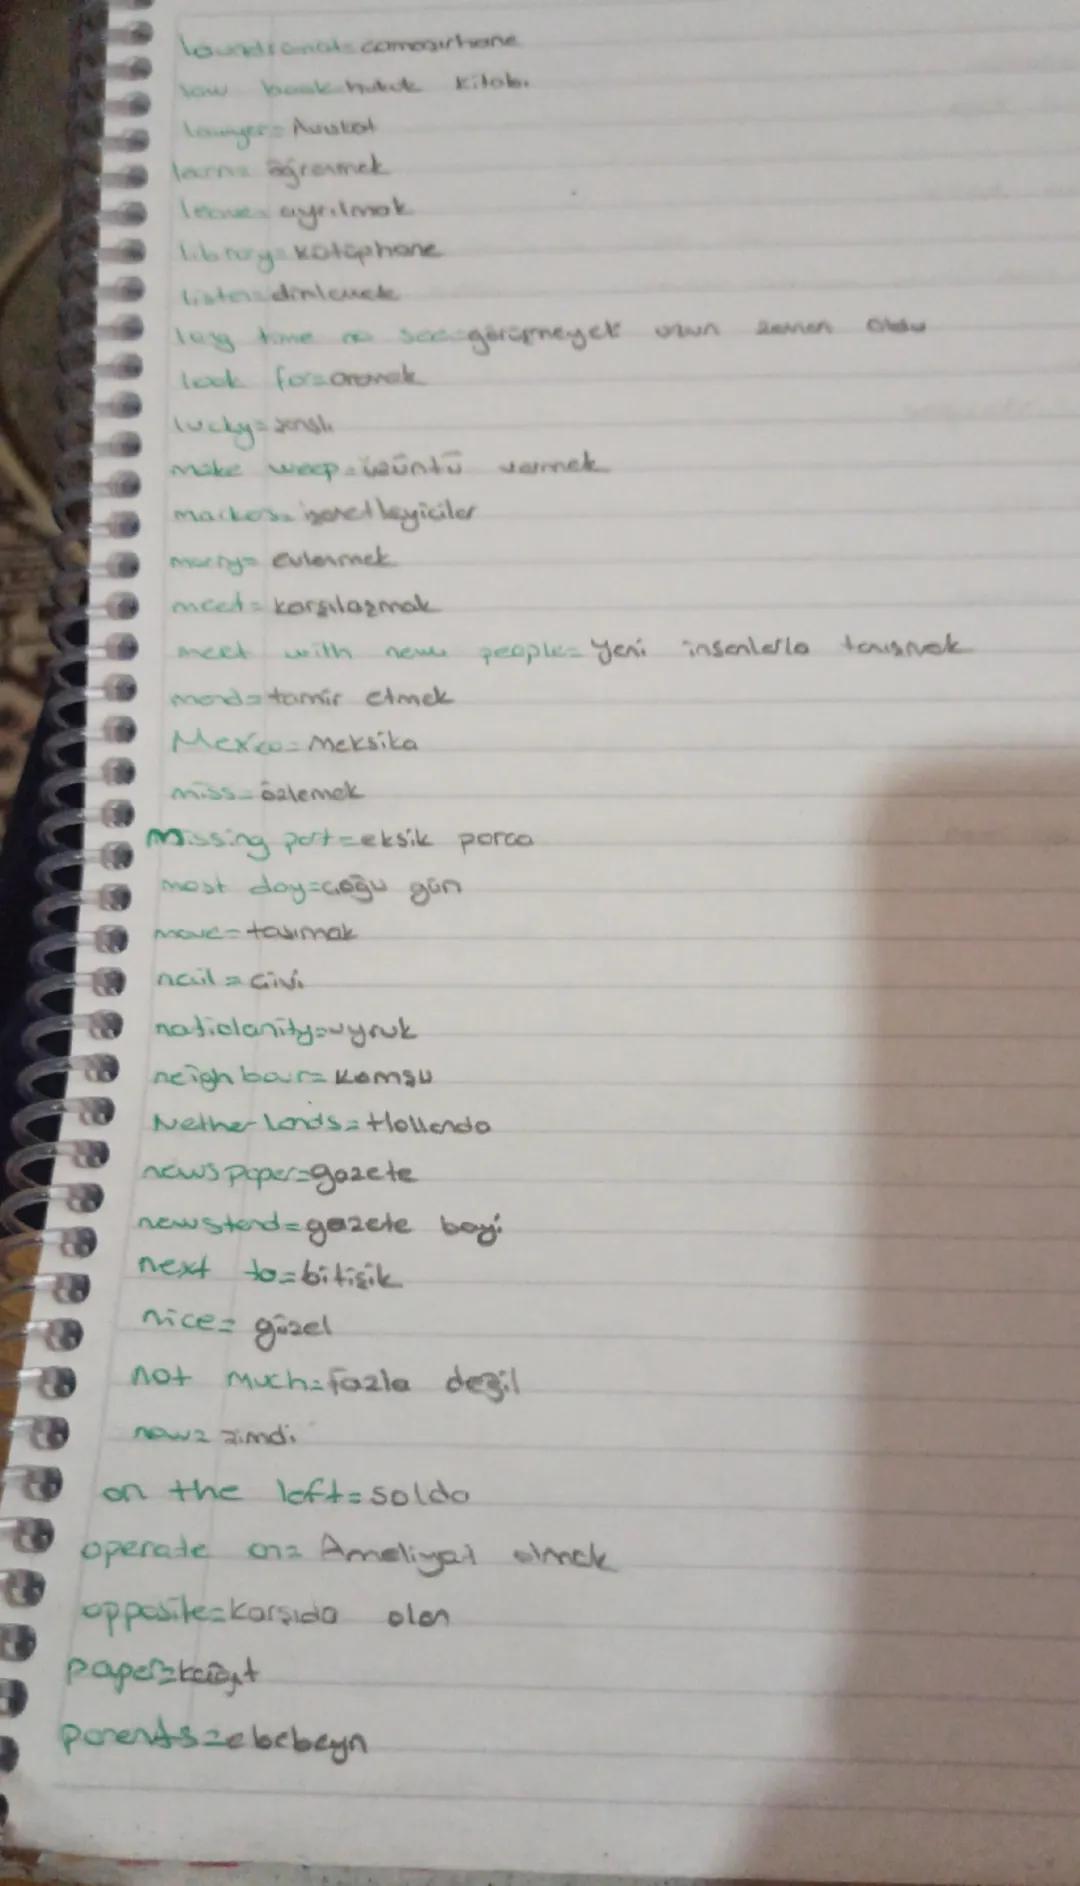 laundromat=çamaşırhane
law book=hukuk kitabı
lawyer=Avukat
learn=öğrenmek
leave=ayrılmak
library=kütüphane
listen=dinlemek
long time no see=görüşmeyek uzun zaman oldu
look for=aramak
lucky=şanslı
make weep=üzüntü vermek
markers=işaretleyiciler
marry=evlenmek
meet=karşılaşmak
meet with new people=yeni insanlarla tanışmak
mend=tamir etmek
Mexico=Meksika
miss=özlemek
Missing part=eksik parça
most day=çoğu gün
move=taşımak
nail=çivi
natiolanity=uyruk
neighbour=komşu
Netherlands=Hollanda
newspaper=gazete
newstand=gazete bayi
next to=bitişik
nice=güzel
not much=fazla değil
now=şimdi
on the left=solda
operate on=Ameliyat olmak
opposite=karşıda olan
paper=kağıt
parents=ebebeyn